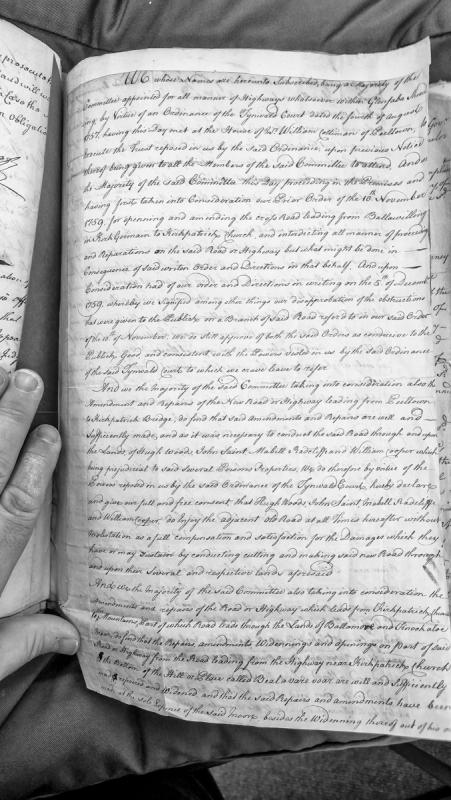 We whose Names are hereunto Subscribed, being a Majority of the
Committee appointed for all manner of Highways whatsoever within Glenfaba Shead
ing, by Virtue of an Ordinance of the Tynwald Court dated the fourth of August
1757, having this day met at the House of Mr William Callimeni of Peeltown, to
execute the Trust reposed in us by the Said Ordinance, upon previous Notice
thereof being given to all the Members of the Said Committee to attend. And
the Majority of the Said Committee this Day proceeding in the Premises and
having first taken into Consideration our Prior Order of the 10th November
1759, for opening and amending the cross Road leading from Ballawilling
in Kirk Germain to Kirkpatrick Church, and interdicting all manner of proceeding
and Reparations on the Said Road or Highway but what might be done in
Consequence of Said written Order and Directions in that behalf. And upon
Consideration had of our Order and Directions in writing on the 5th of December
1759, whereby we Signified among other things our disapprobation of the obstructions
that were given to the Publick on a Branch of Said Road referd to in our Said Order
of the 10th of November, we do still approve of both the Said Orders as conducive to the
Publick Good and consistent with the Powers vested in us by the Said Ordinance
of the said Tynwald Court, to which we crave leave to refer
And we the Majority of the Said Committee taking into consideration also the
Amendment and Repairs of the New Road or Highway leading from Peeltown
to Kirkpatrick Bridge, do find that Said Amendments and Repairs are well and
Sufficiently made, and as it was necessary to conduct the Said Road through and upon
the Lands of Hugh Woods, John Saint, Maball Radcliff and William Cooper which
being prejudicial to Said Several Persons Properties, We do therefore by virtue of the
Powers reposed in us by the Said Ordinance of the Tynwald Court, hereby declare
and give our full and free consent, that Hugh Woods, John Saint, Maball Radcliff
and William Cooper, do Enjoy the adjacent old Road at all Times hereafter without
Molestation as a full compensation and Satisfaction for the Damages which they
have or may Sustain by conducting cutting and making Said new Road through
and upon their Several and respective lands aforesaid
And we the Majority of the Said Committee also taking into consideration the
Amendments and repairs of the Road or Highway which leads from Kirkpatrick Church
to Mountains, Part of which Road leads through the Lands of Ballamore and Knockaloe
moar, do find that the Repairs, amendments Widennings and openings on part of Said
Road or Highway from the Road leading from the Highway near Kirkpatrick Church
to the Bottom of the Hill or Place called Beal a vare voar are well and Sufficiently
made repaired and Widened and that the said Repairs and amendments have been
made at the Sole Expence of the Said Moore besides the Widenning thereof out of his